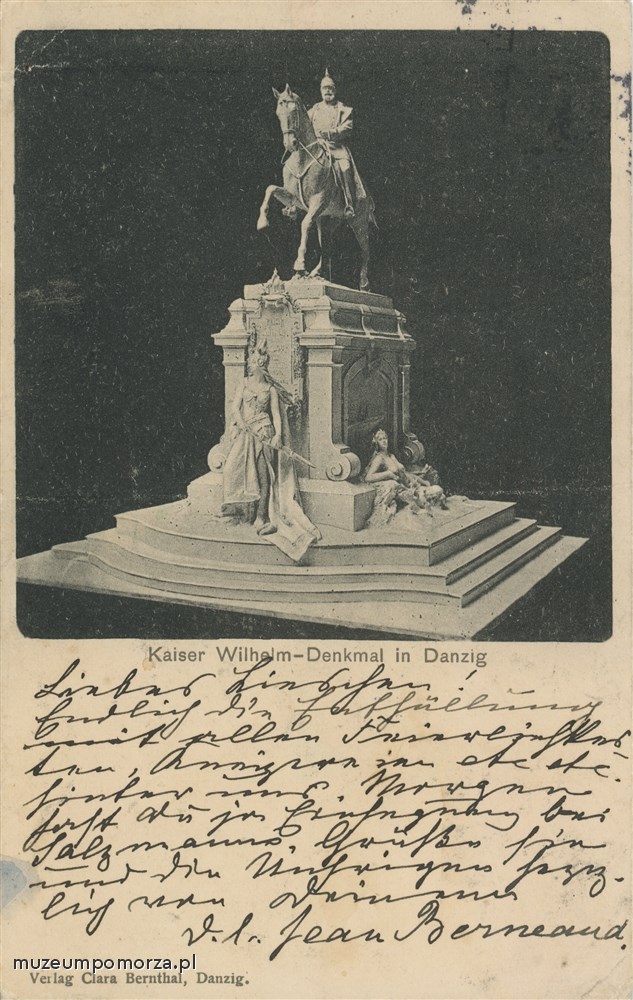 Kaiser Wilhelm-Denkmal in Danzig
Liebes Lieschen!
Endlich die Enthüllung
mit allen Feierlichkei
ten, Kneipereien etc etc.
hinter uns. Morgen
habt Du ja Einsegnung bei
Salzmanns. Grüße sie
und die Unsrigen herz-
lich von Deinem
d. l. Jean Berneaud.
muzeumpomorza.pl
Verlag Clara Bernthal, Danzig.